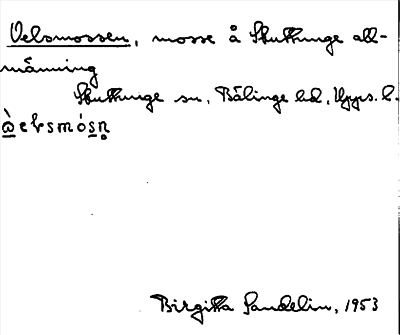 Oelsmossen, mosse å Skuttunge all-
männing
Skuttunge sn, Bälinge hd, Upps. l.
Birgitta Sandelin, 1953